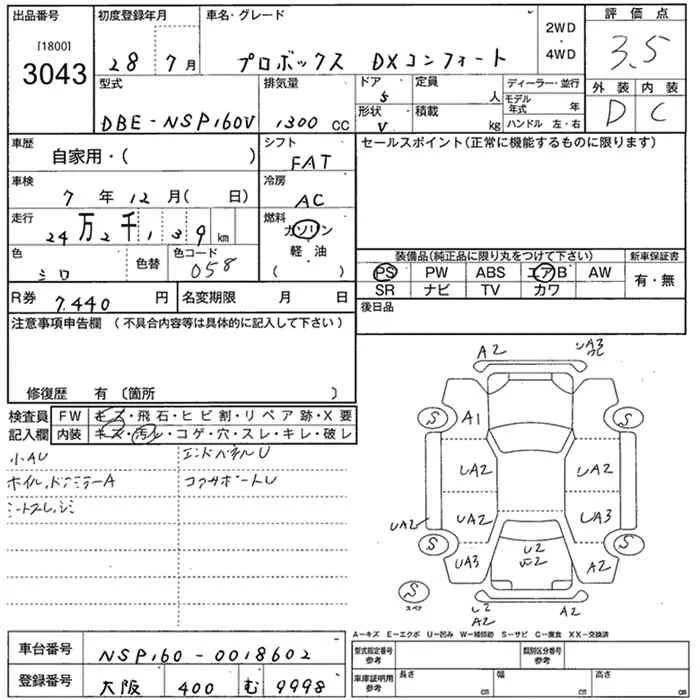 出品番号
[1800]
3043
初度登録年月
28 7月
車名・グレード
プロボックス DXコンフォート
2WD
・
4WD
評価点
3.5
型式
DBE-NSP160V
排気量
1300 CC
ドア
5
形状
V
定員
人
積載
kg
ディーラー・並行
モデル年式 年
ハンドル 左・右
外装 内装
D C
車歴
自家用・( )
シフト
FAT
セールスポイント(正常に機能するものに限ります)
車検
7年12月( 日)
冷房
AC
走行
24万2千139km
燃料
ガソリン
・
軽油
( )
色
シロ
色替
色コード
058
装備品(純正品に限り丸をつけて下さい)
新車保証書
PS PW ABS エアB AW
SR ナビ TV カワ
有・無
R券
7,440円
名変期限 月 日
後日品
注意事項申告欄 (不具合内容等は具体的に記入して下さい)
修復歴 有 〔箇所 〕
検査員
記入欄
FW キズ・飛石・ヒビ割・リペア跡・X要
内装 キズ・汚レ・コゲ・穴・スレ・キレ・破レ
小AU
エンドパネルU
コアサポートU
A2
UA3
A1
S
S
UA2
UA2
UA2
UA3
UA2
S
S
UA3
U2
A2
S
スペア
U2
A2
A2
A-キズ E-エクボ U-凹み W-補修跡 S-サビ C-腐食 XX-交換済
車台番号
NSP160-0018602
登録番号
大阪 400 む 9998
型式指定番号
参考
類別区分番号
参考
車庫証明用
参考
長さ cm
幅 cm
高さ cm